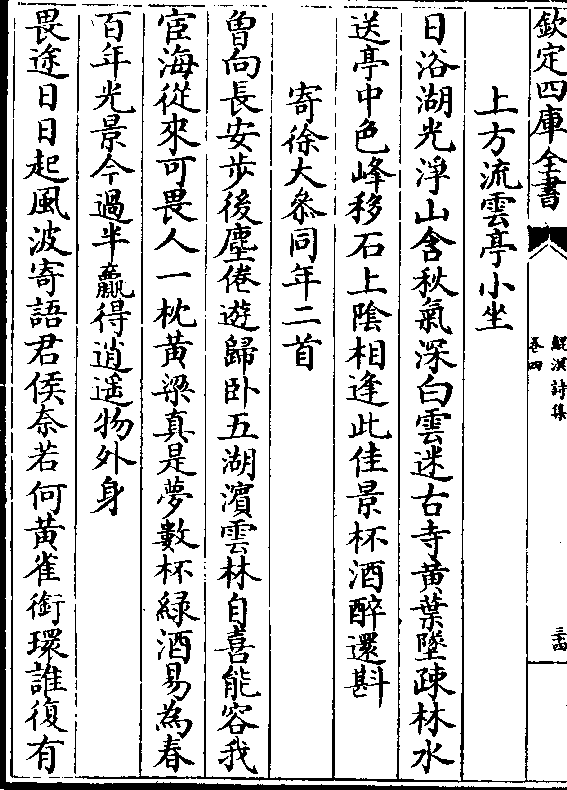 欽定四庫全書
鯤溟詩集
卷四
三十四
上方流雲亭小坐
日浴湖光淨山含秋氣深白雲迷古寺黃葉墜疎林水
送亭中色峰移石上陰相逢此佳景杯酒醉還斟
寄徐大叅同年二首
曾向長安步後塵倦遊歸卧五湖濵雲林自喜能容我
宦海從來可畏人一枕黃粱真是夢數杯緑酒易為春
百年光景今過半贏得逍遥物外身
畏途日日起風波寄語君侯奈若何黃雀銜環誰復有